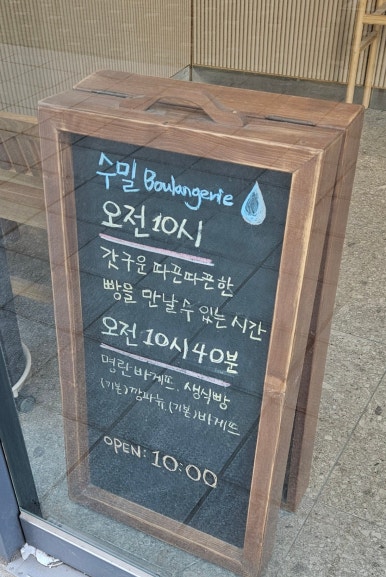 수밀 Boulangerie
오전 10시
갓 구운 따끈따끈한
빵을 만날 수 있는 시간
오전 10시 40분
명란바게뜨, 생식빵
(기본)깜파뉴, (기본)바게뜨
OPEN: 10:00